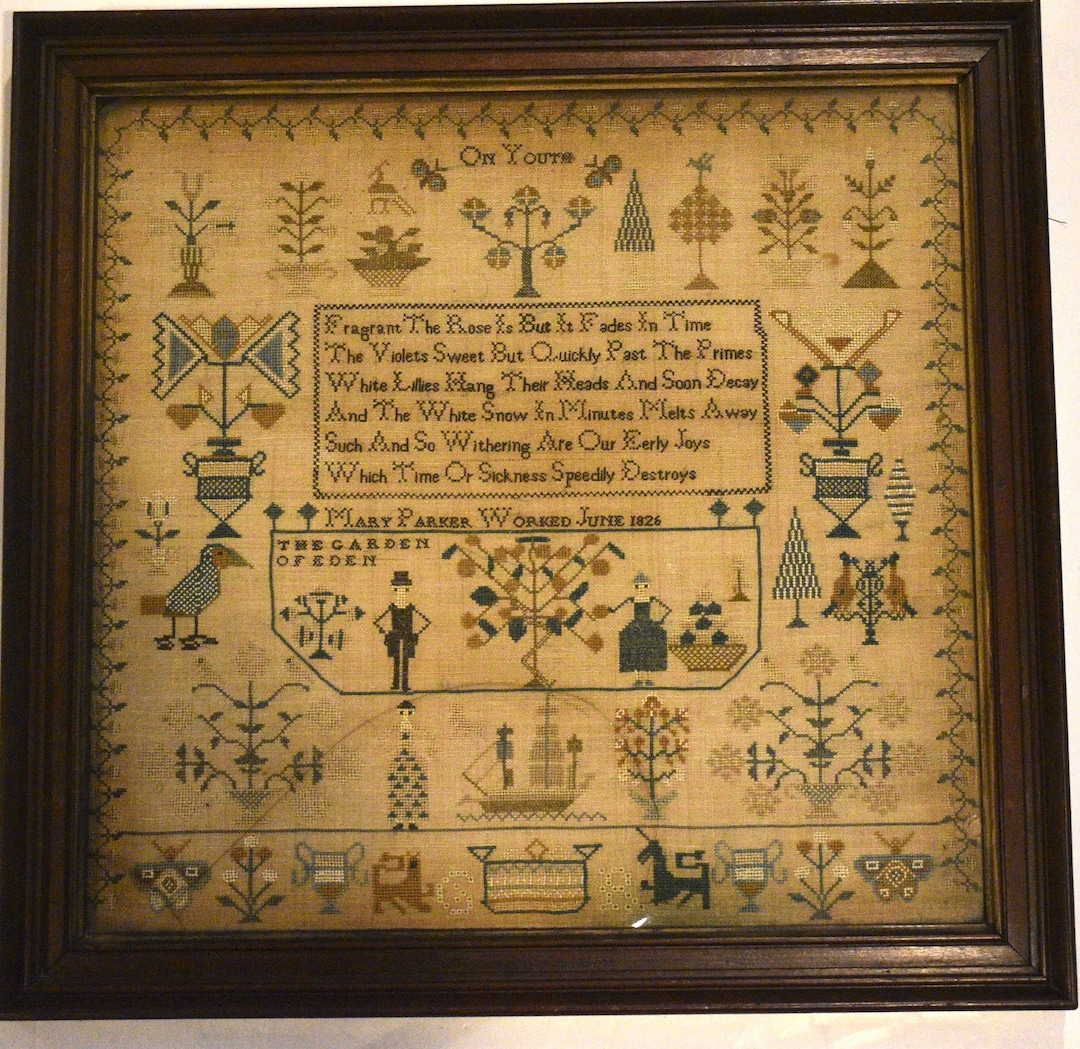 On Youth
Fragrant The Rose Is But It Fades In Time
The Violets Sweet But Quickly Past The Primes
White Lillies Hang Their Heads And Soon Decay
And The White Snow In Minutes Melts Away
Such And So Withering Are Our Eerly Joys
Which Time Or Sickness Speedily Destroys
Mary Parker Worked June 1826
THE GARDEN
OF EDEN